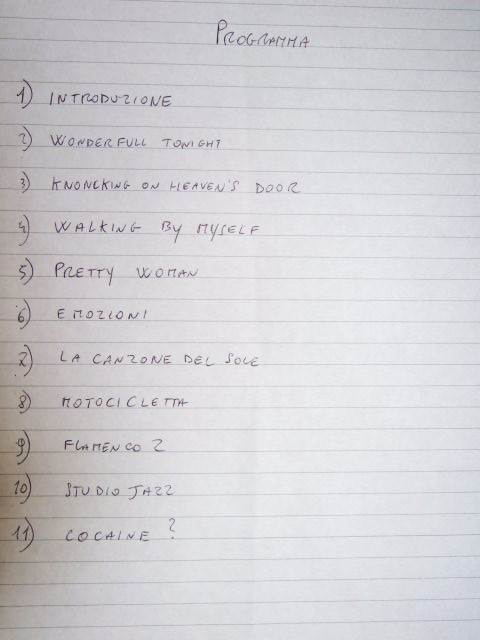 PROGRAMMA
1) INTRODUZIONE
2) WONDERFULL TONIGHT
3) KNONCKING ON HEAVEN'S DOOR
4) WALKING BY MYSELF
5) PRETTY WOMAN
6) EMOZIONI
7) LA CANZONE DEL SOLE
8) MOTOCICLETTA
9) FLAMENCO 2
10) STUDIO JAZZ
11) COCAINE ?